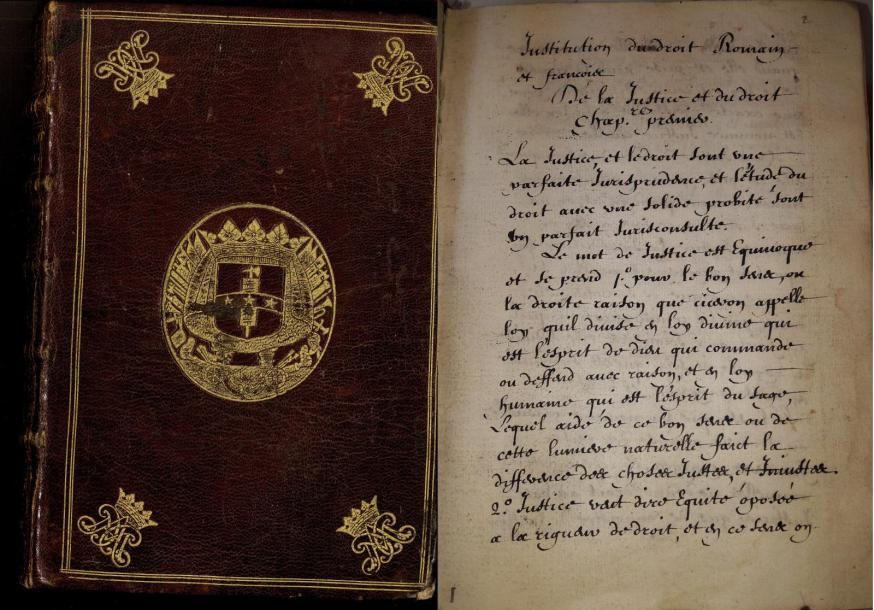 2
Institution du droit Romain
et francois
De la Justice et du droit
Chap.re premier.
La Justice, et le droit sont une
parfaite Jurisprudence, et l'étude du
droit avec une solide probité sont
un parfait Jurisconsulte.
Le mot de Justice est Equivoque
et se prend 1.º pour le bon sens, ou
la droite raison que ciceron appelle
loy quil divise en loy divine qui
est l'esprit de dieu qui commande
ou deffend avec raison, et en loy
humaine qui est l'esprit du sage,
Lequel aidé de ce bon sens ou de
cette lumiere naturelle faict la
difference des choses Justes, et Injustes.
2.º Justice veut dire Equité oposée
a la rigueur de droit, et en ce sens on